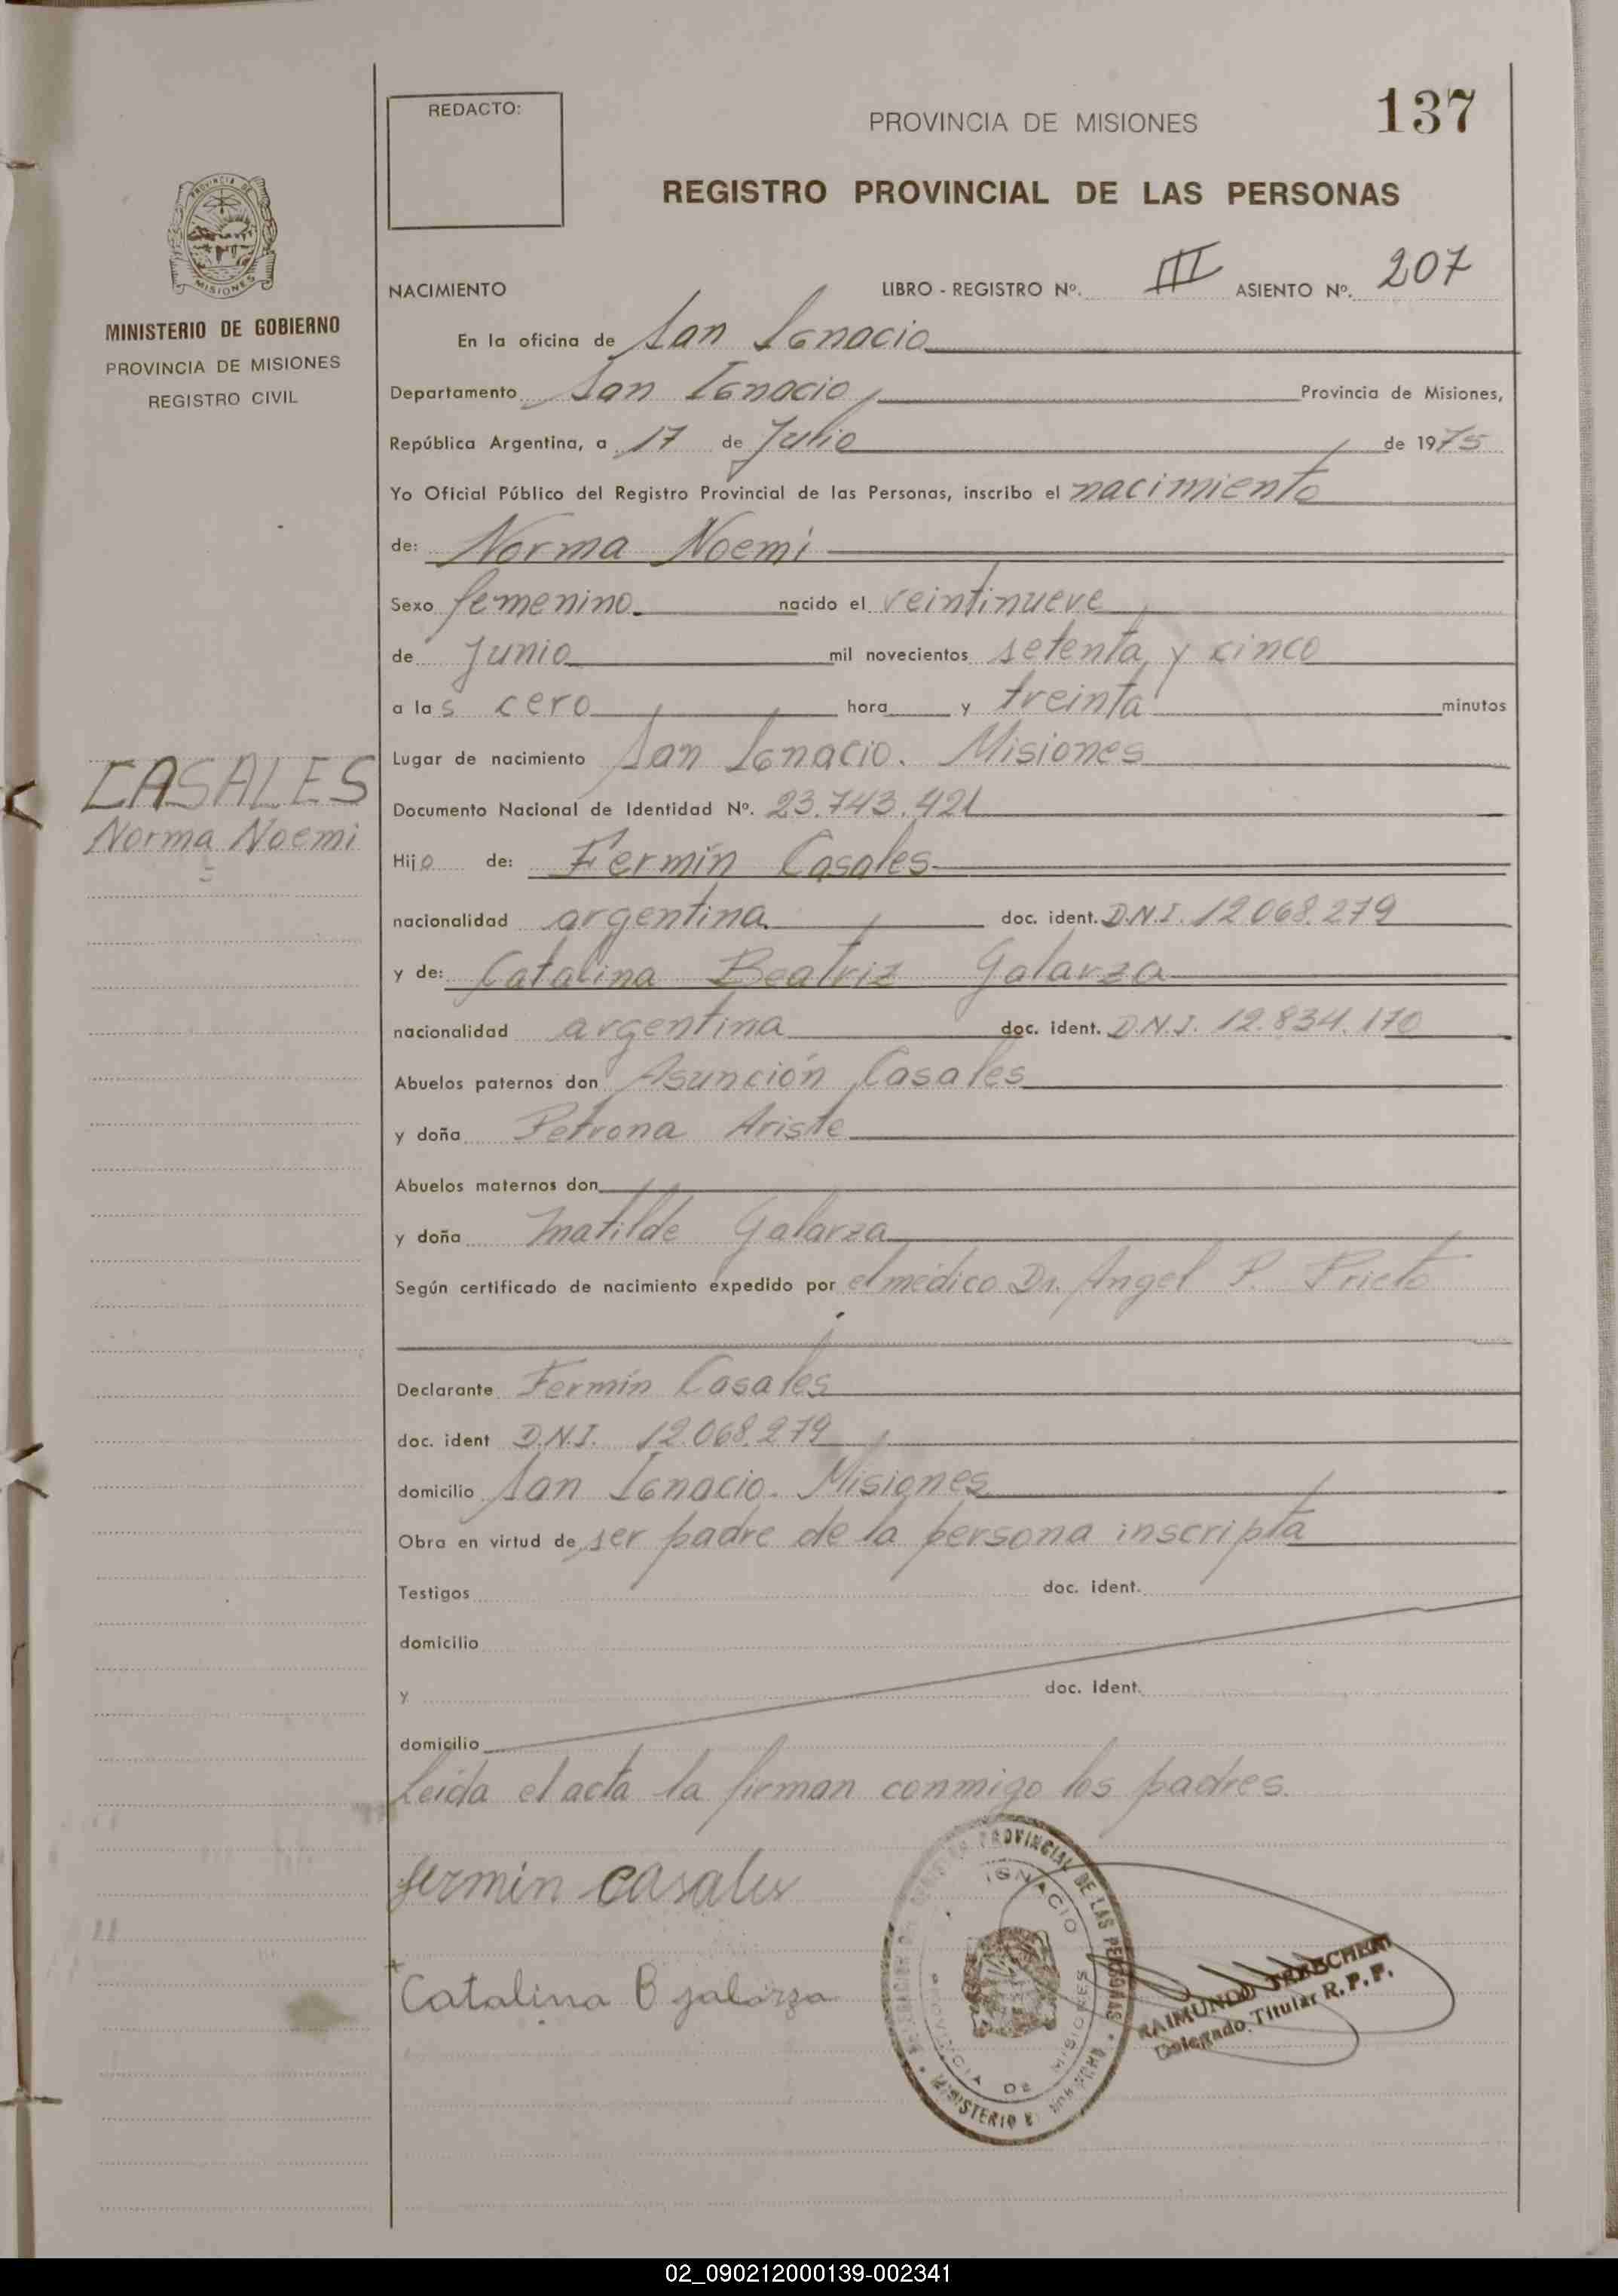 REDACTO:
PROVINCIA DE MISIONES
137
REGISTRO PROVINCIAL DE LAS PERSONAS
PROVINCIA DE
MISIONES
MINISTERIO DE GOBIERNO
PROVINCIA DE MISIONES
REGISTRO CIVIL
NACIMIENTO LIBRO - REGISTRO Nº. III ASIENTO Nº. 207
En la oficina de San Ignacio
Departamento San Ignacio Provincia de Misiones,
República Argentina, a 17 de Julio de 1975
Yo Oficial Público del Registro Provincial de las Personas, inscribo el nacimiento
de: Norma Noemi
Sexo femenino. nacido el veintinueve
de Junio mil novecientos setenta y cinco
a las cero hora y treinta minutos
Lugar de nacimiento San Ignacio. Misiones
CASALES
Norma Noemi
Documento Nacional de Identidad Nº. 23.743.421
Hijo de: Fermín Casales
nacionalidad argentina doc. ident. D.N.I. 12.068.279
y de: Catalina Beatriz Galarza
nacionalidad argentina doc. ident. D.N.I. 12.834.170
Abuelos paternos don Asunción Casales
y doña Petrona Ariste
Abuelos maternos don
y doña Matilde Galarza
Según certificado de nacimiento expedido por el médico Dr. Angel P. Prieto
Declarante Fermín Casales
doc. ident D.N.I. 12.068.279
domicilio San Ignacio. Misiones
Obra en virtud de ser padre de la persona inscripta
Testigos doc. ident.
domicilio
y doc. Ident.
domicilio
Leída el acta la firman conmigo los padres.
fermin casales
Catalina B galarza
PROVINCIAL DE LAS PERSONAS
IGNACIO
PROVINCIA DE MISIONES
MINISTERIO
RAIMUNDO
Delegado Titular R. P. P.
02_090212000139-002341